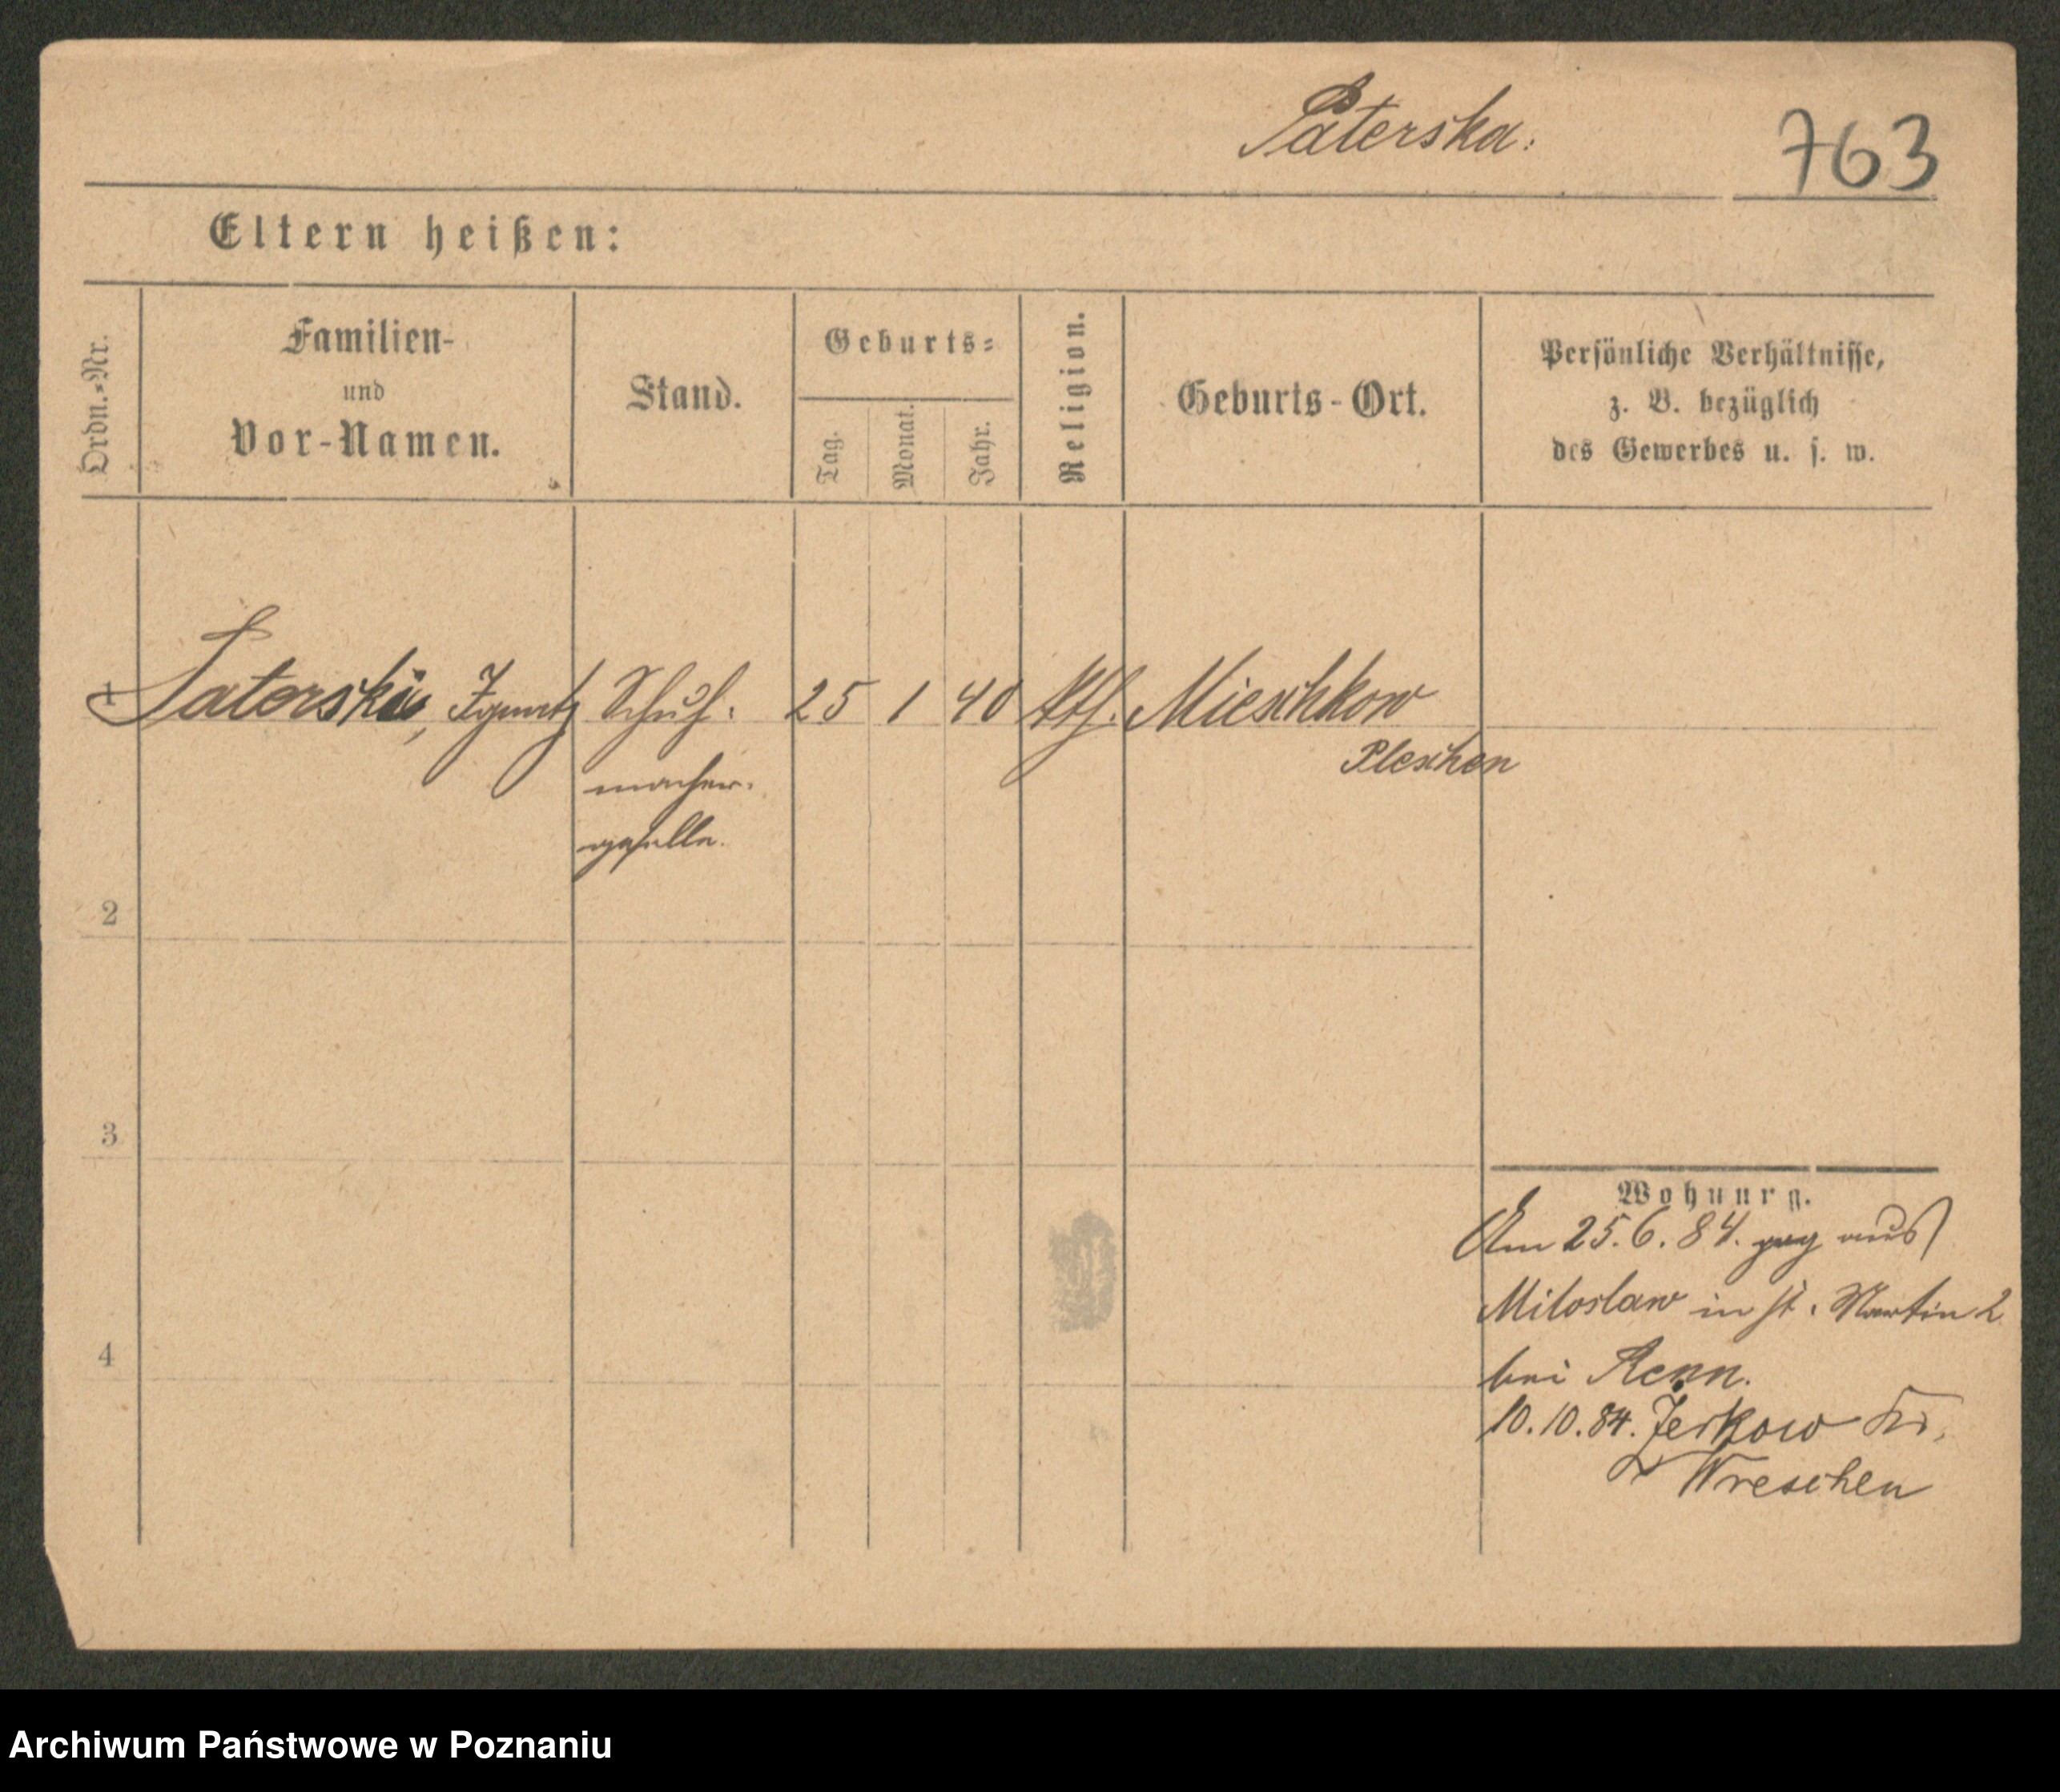 Paterska.
763
Eltern heißen:
Ordn.=Nr.
Familien-
und
Vor-Namen.
Stand.
Geburts=
Tag.
Monat.
Jahr.
Religion.
Geburts-Ort.
Persönliche Verhältnisse,
z. B. bezüglich
des Gewerbes u. s. w.
1 Paterski, Ignatz Schuh- 25 1 40 kth. Mieschkow
Pleschen
macher-
geselle.
2
3
4
Wohnung.
Am 25.6.84. zug aus
Miloslaw in St. Martin 2
bei Renn.
10.10.84. Zerkow Kr.
Wreschen
Archiwum Państwowe w Poznaniu